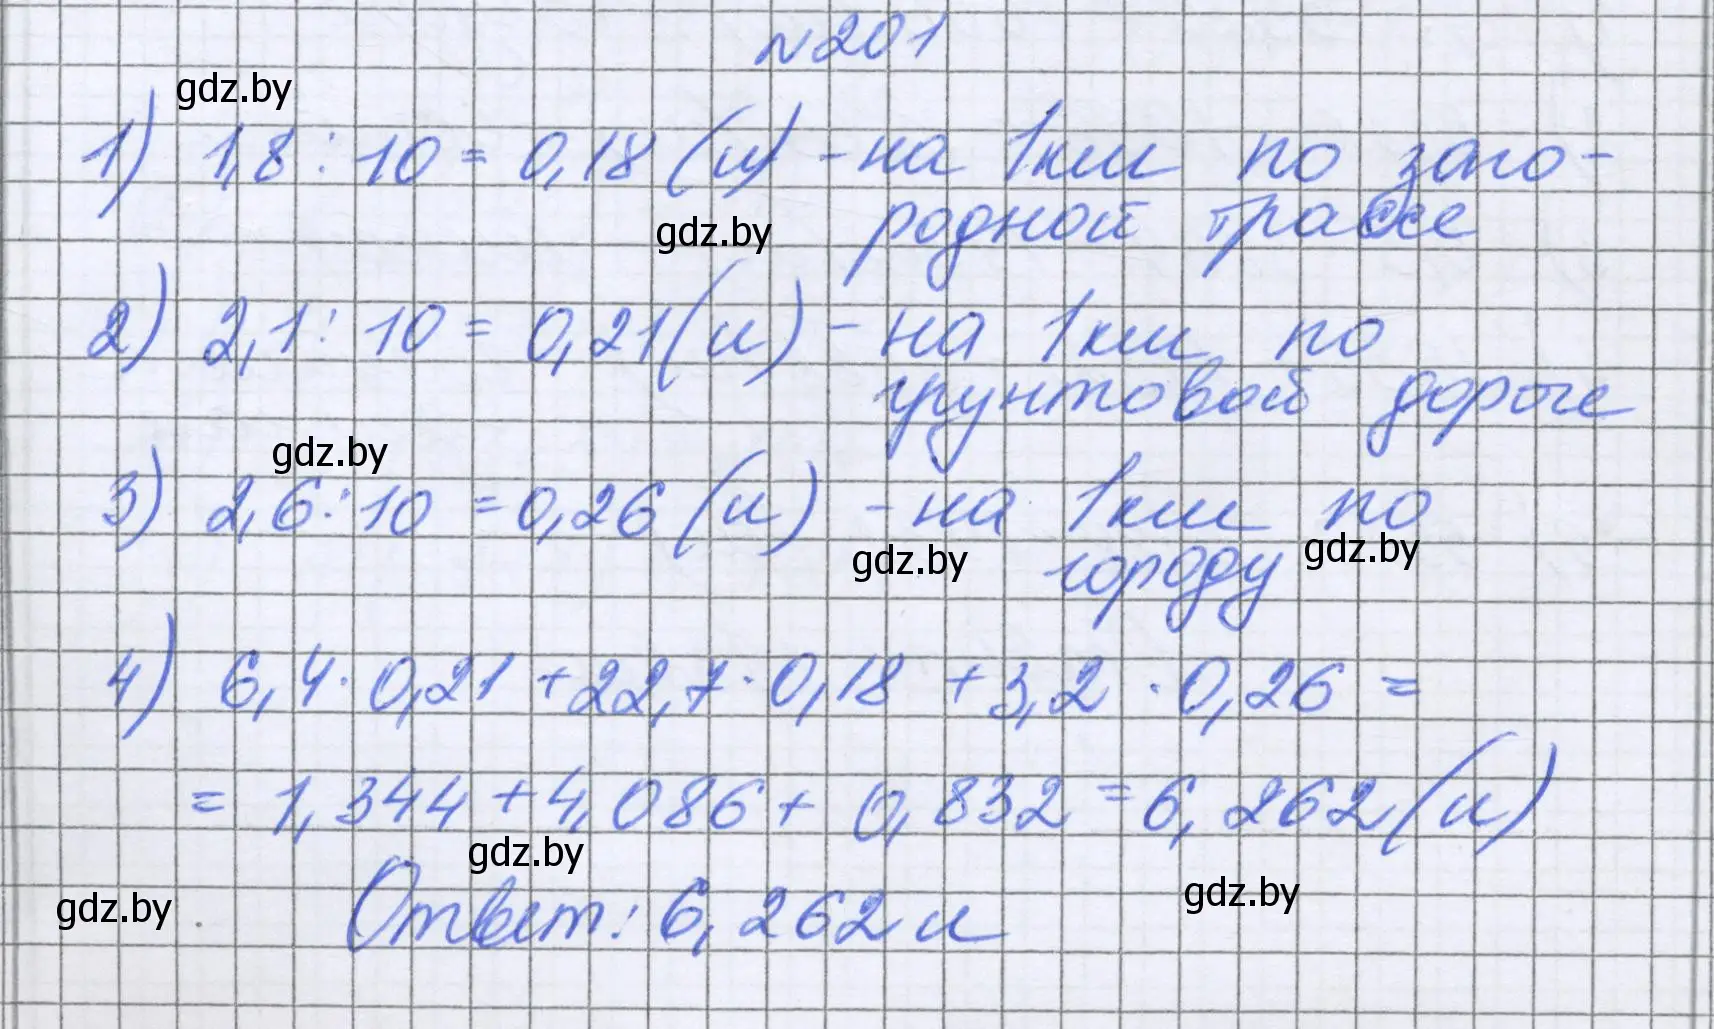 №201
gdz.by
1) 1,8 : 10 = 0,18 (л) - на 1км по заго-
родной трассе
gdz.by
2) 2,1 : 10 = 0,21 (л) - на 1км по
грунтовой дороге
gdz.by
3) 2,6 : 10 = 0,26 (л) - на 1км по
городу
gdz.by
gdz.by
4) 6,4 · 0,21 + 22,7 · 0,18 + 3,2 · 0,26 =
= 1,344 + 4,086 + 0,832 = 6,262 (л)
gdz.by
gdz.by
gdz.by
Ответ: 6,262 л